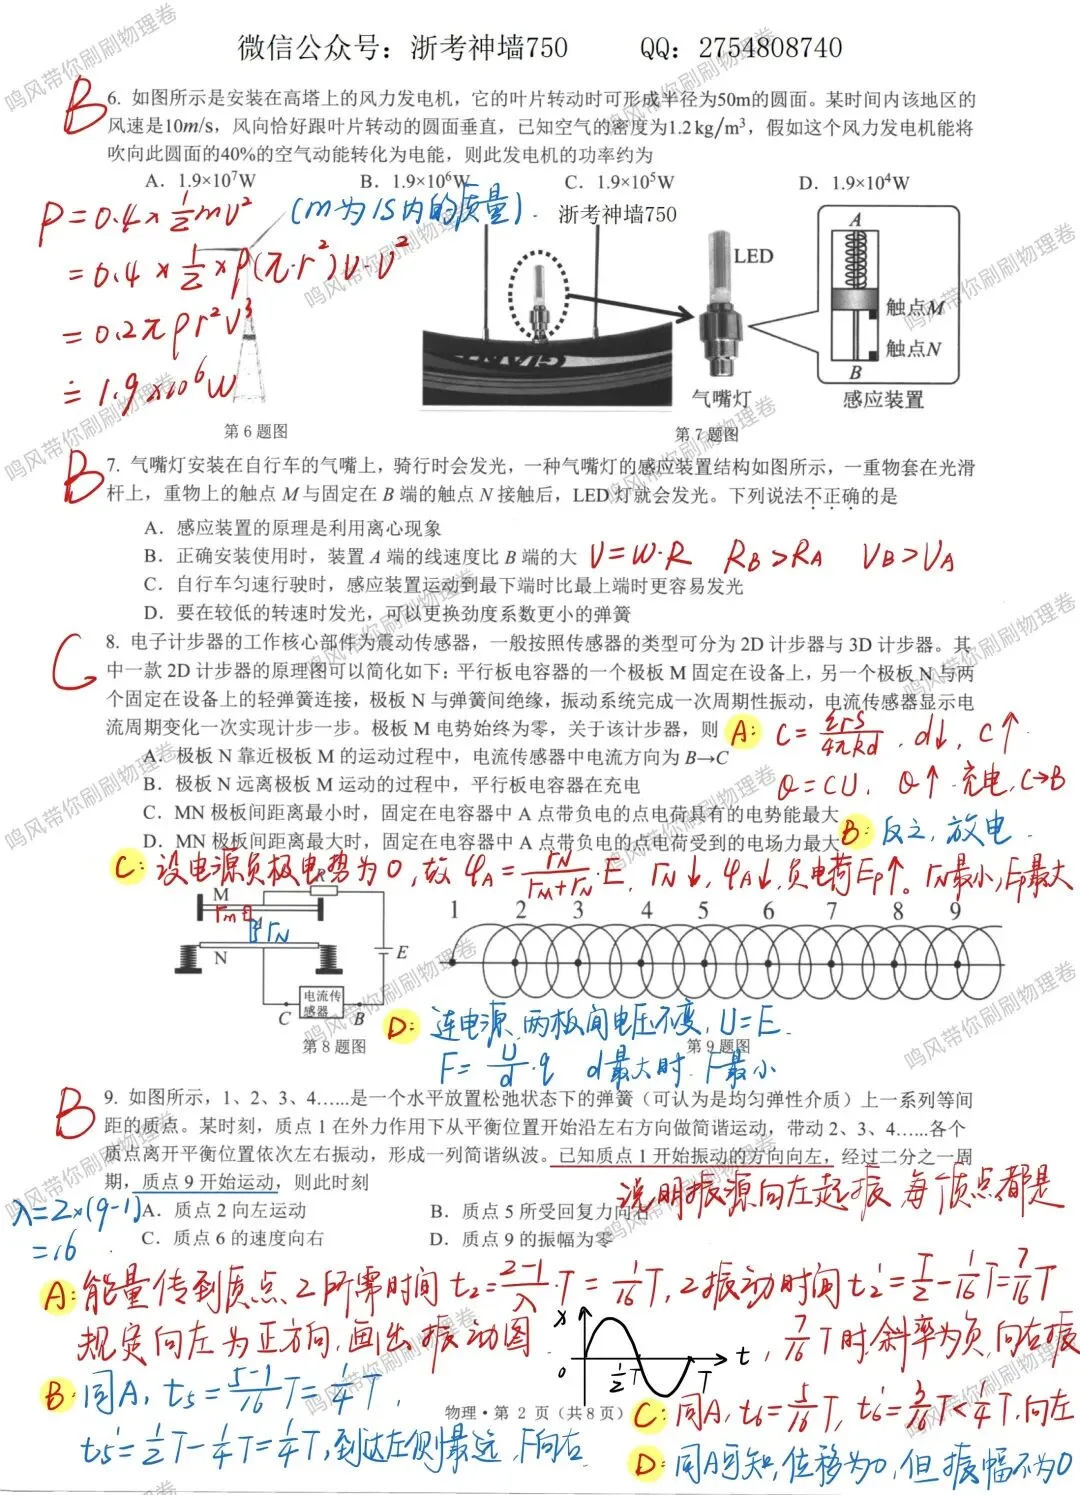 微信公众号：浙考神墙750 QQ：2754808740
B
6. 如图所示是安装在高塔上的风力发电机，它的叶片转动时可形成半径为50m的圆面。某时间内该地区的
风速是10m/s，风向恰好跟叶片转动的圆面垂直，已知空气的密度为1.2kg/m³，假如这个风力发电机能将
吹向此圆面的40%的空气动能转化为电能，则此发电机的功率约为
A．1.9×10⁷W B．1.9×10⁶W C．1.9×10⁵W D．1.9×10⁴W
P=0.4×½mv² (m为1S内的质量).
=0.4×½×ρ(π·r²)v·v²
=0.2πρr²v³
≐1.9×10⁶W
浙考神墙750
LED
气嘴灯
A
触点M
触点N
B
感应装置
第6题图
第7题图
B
7. 气嘴灯安装在自行车的气嘴上，骑行时会发光，一种气嘴灯的感应装置结构如图所示，一重物套在光滑
杆上，重物上的触点 M 与固定在 B 端的触点 N 接触后，LED 灯就会发光。下列说法不正确的是
A．感应装置的原理是利用离心现象
B．正确安装使用时，装置 A 端的线速度比 B 端的大 V=W·R RB>RA VB>VA
C．自行车匀速行驶时，感应装置运动到最下端时比最上端时更容易发光
D．要在较低的转速时发光，可以更换劲度系数更小的弹簧
C
8. 电子计步器的工作核心部件为震动传感器，一般按照传感器的类型可分为 2D 计步器与 3D 计步器。其
中一款 2D 计步器的原理图可以简化如下：平行板电容器的一个极板 M 固定在设备上，另一个极板 N 与两
个固定在设备上的轻弹簧连接，极板 N 与弹簧间绝缘，振动系统完成一次周期性振动，电流传感器显示电
流周期变化一次实现计步一步。极板 M 电势始终为零，关于该计步器，则
A: C=εrS/4πkd, d↓, C↑
A．极板 N 靠近极板 M 的运动过程中，电流传感器中电流方向为 B→C
B．极板 N 远离极板 M 运动的过程中，平行板电容器在充电
Q=CU, Q↑ 充电, C→B
C．MN 极板间距离最小时，固定在电容器中 A 点带负电的点电荷具有的电势能最大
D．MN 极板间距离最大时，固定在电容器中 A 点带负电的点电荷受到的电场力最大
B: 反之, 放电.
C: 设电源负极电势为0, 故 φA=rN/(rM+rN)·E, rN↓, φA↓, 负电荷Ep↑。rN最小, Ep最大
M
R
rM
A
rN
N
E
电流传
感器
C
B
第8题图
1 2 3 4 5 6 7 8 9
第9题图
D: 连电源, 两板间电压不变, U=E.
F=U/d·q d最大时 F最小
B
9. 如图所示，1、2、3、4……是一个水平放置松弛状态下的弹簧（可认为是均匀弹性介质）上一系列等间
距的质点。某时刻，质点 1 在外力作用下从平衡位置开始沿左右方向做简谐运动，带动 2、3、4……各个
质点离开平衡位置依次左右振动，形成一列简谐纵波。已知质点 1 开始振动的方向向左，经过二分之一周
期，质点 9 开始运动，则此时刻
说明振源向左起振 每个质点都是
λ=2×(9-1)
=16
A．质点 2 向左运动 B．质点 5 所受回复力向右
C．质点 6 的速度向右 D．质点 9 的振幅为零
A: 能量传到质点 2 所需时间 t₂=(2-1)/λ·T=1/16T, 2振动时间 t₂'=T/2-1/16T=7/16T
规定向左为正方向, 画出振动图
x
o
½T
T
t
, 7/16T时, 斜率为负, 向右振
B: 同A, t₅=(5-1)/16T=¼T,
t₅'=½T-¼T=¼T, 到达左侧最远, F向右
物理·第 2 页（共8页）
C: 同A, t₆=5/16T, t₆'=3/16T<¼T, 向左
D: 同A可知, 位移为0, 但振幅不为0
鸣风带你刷刷物理卷